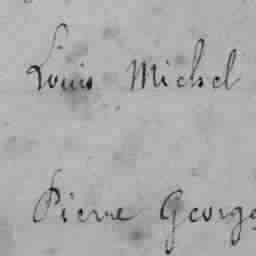 Louis Michel
Pierre George